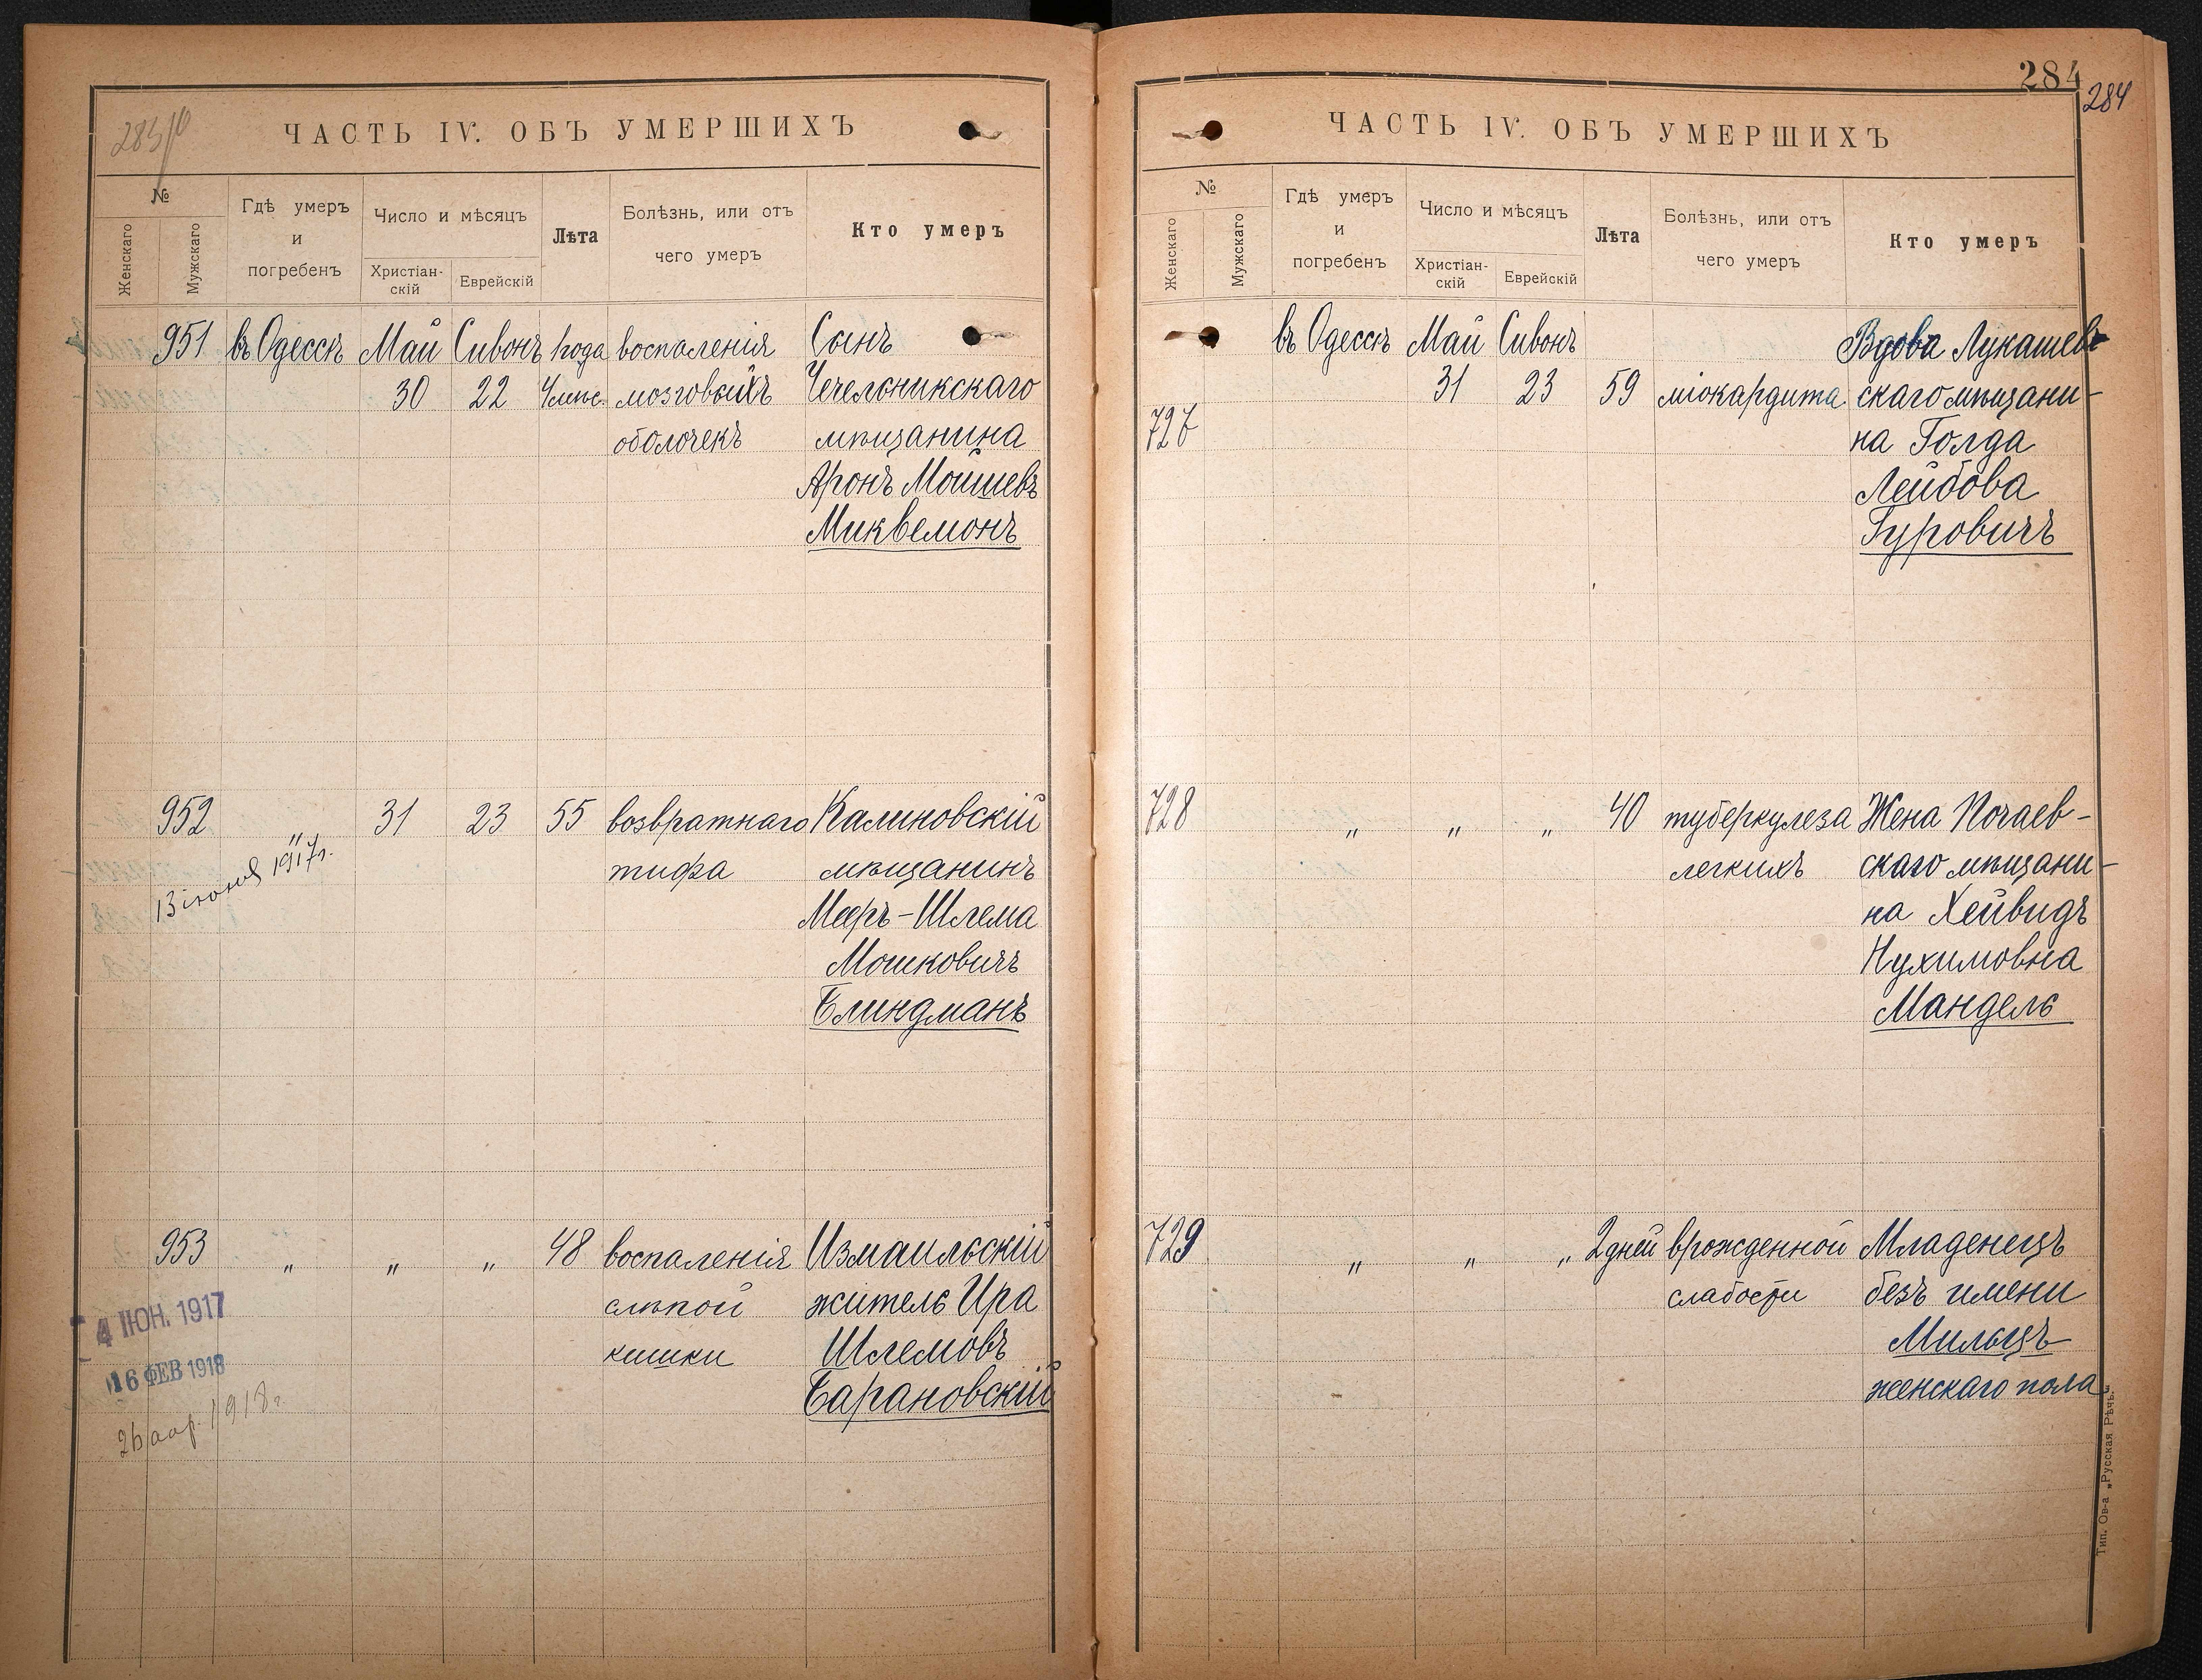 ЧАСТЬ IV. ОБЪ УМЕРШИХЪ
№
Женскаго
Мужскаго
Гдѣ умеръ
и
погребенъ
Число и мѣсяцъ
Христіан-
скій
Еврейскій
Лѣта
Болѣзнь, или отъ
чего умеръ
Кто умеръ
951 въ Одессѣ Май Сивонъ 1 года воспаленія Сынъ
30 22 4 мѣс. мозговыхъ Чечельникскаго
оболочекъ мѣщанина
Аронъ Мошиевъ
Миквемонъ
952 " 31 23 55 возвратнаго Калиновскій
13 іюня 1917г. тифа мѣщанинъ
Мееръ-Шлема
Мошковичъ
Блиндманъ
953 " " " 48 воспаленія Измаильскій
слѣпой житель Ира
кишки Шлемовъ
Барановскій
4 ІЮН. 1917
16 ФЕВ 1918
26 апр. 1918г
284
284
ЧАСТЬ IV. ОБЪ УМЕРШИХЪ
№
Женскаго
Мужскаго
Гдѣ умеръ
и
погребенъ
Число и мѣсяцъ
Христіан-
скій
Еврейскій
Лѣта
Болѣзнь, или отъ
чего умеръ
Кто умеръ
въ Одессѣ Май Сивонъ Вдова Лукашев-
31 23 59 міокардита скаго мѣщани-
727 на Голда
Лейбова
Гуровичъ
728 " " " 40 туберкулеза Жена Почаев-
легкихъ скаго мѣщани-
на Хейвидъ
Нухимовна
Мандель
729 " " " 2 дней врожденной Младенецъ
слабости безъ имени
Мильцъ
женскаго пола
Тип. Ов-а „Русская Рѣчь"